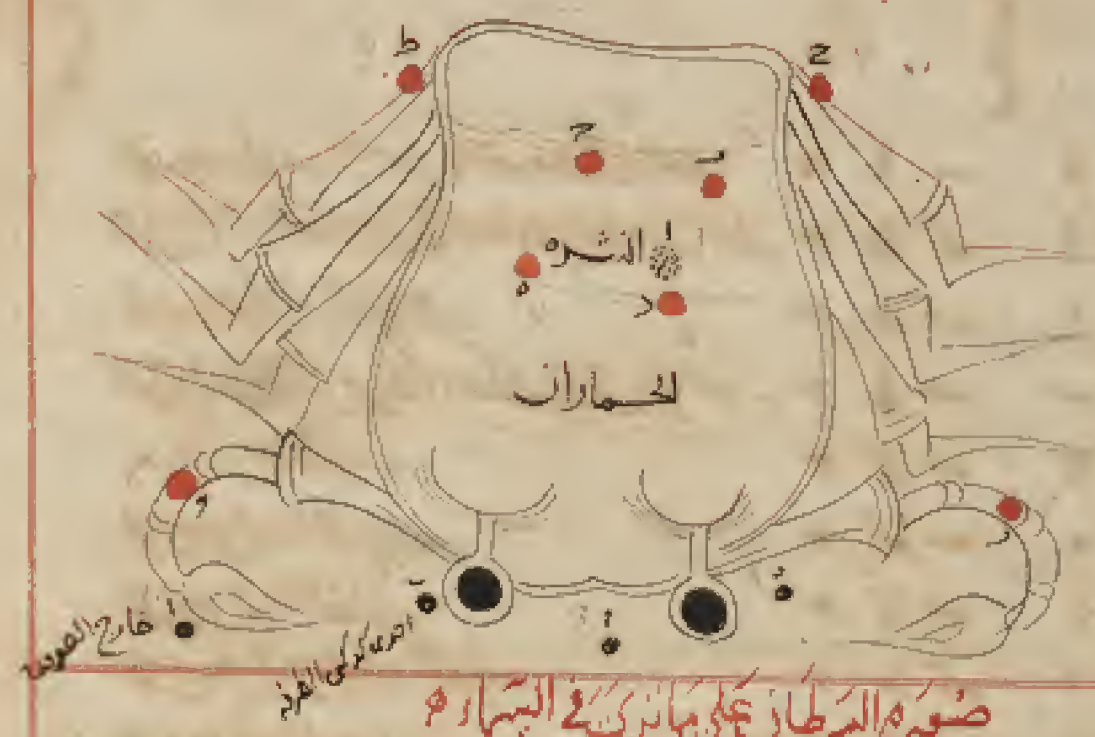 ط
ح
ح
ب
ا
النثره
ه
د
الحماران
و
ز
ا خارج الصوره
ب
احد كوكبى الطرف
ا
د
صوره السرطان على ما ترى فى السماء